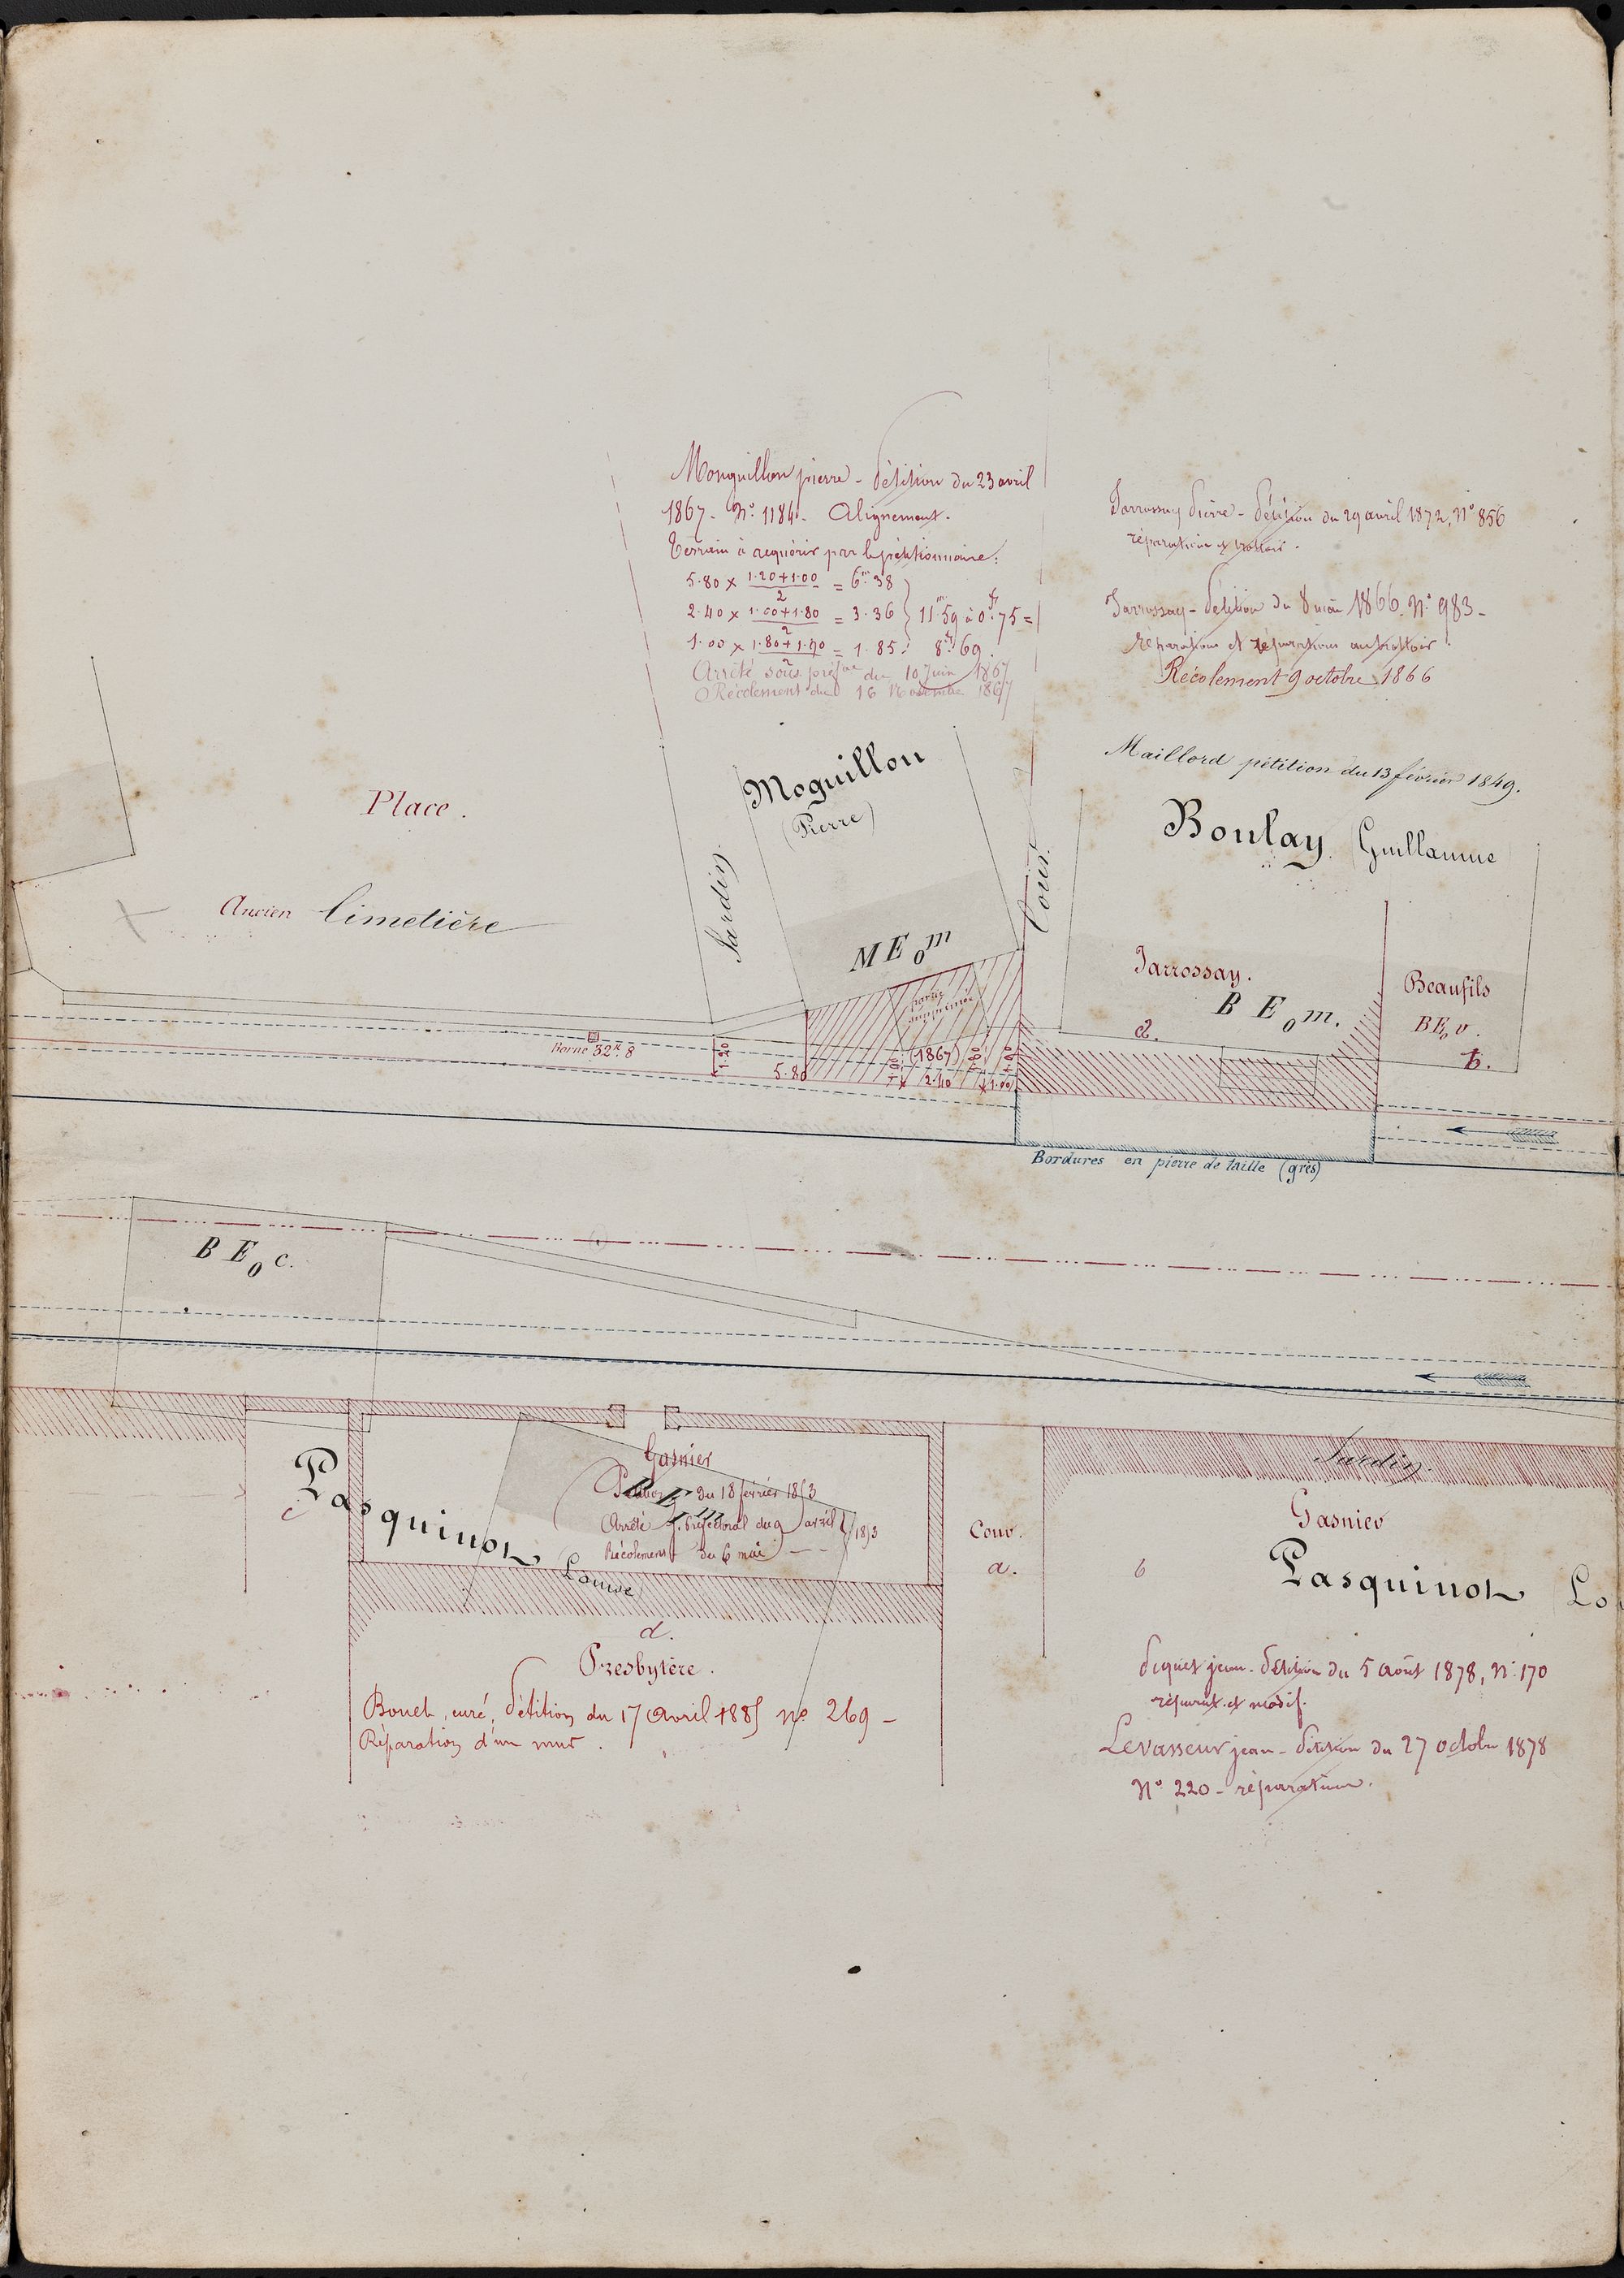 Monguillon pierre - Pétition du 23 avril
1867 - N° 1184. Alignement.
Terrain à acquérir par le pétitionnaire :
5.80 × 1.20+1.00/2 = 6.m38
2.40 × 1.00+1.80/2 = 3.36 } 11m.59 à 0f.75 =
1.00 × 1.80+1.90/2 = 1.85 8f.69.
Arrêté sous préfal du 10 Juin 1867
Récolement du 16 Novembre 1867
Jarrossay Pierre - Pétition du 29 avril 1872, N° 856
réparation et trottoir.
Jarrossay - Pétition du 8 mai 1866. N° 983 -
réparations et
Récolement 9 octobre 1866
Maillord pétition du 13 février 1849.
Moguillon
(Pierre)
Boulay (Guillaume
Place.
Ancien Cimetière
Jardin.
Cour.
M E o m
partie
supprimée
Jarrossay.
B E o m.
d.
Beaufils
B E o v.
b.
Borne 32K.8
1.20
5.80
1.00
(1867)
1.80
1.90
2.40
1.00
Bordures en pierre de taille (grès)
B E o c.
Jardin.
Gasnier
Pétition du 18 février 1853
Arrêté s. préfectoral du 9 avril
Récolement du 6 mai
1853
Pasquinot
(Louise)
c
Cour.
a.
b
Gasnier
Pasquinot (Lo
d.
Presbytère.
Bouet, curé, Pétition du 17 Avril 1885 n° 269 -
Réparation d'un mur.
Piquet jean - Pétition du 5 août 1878, N° 170
réparat. et modif.
Levasseur jean - Pétition du 27 octobre 1878
N° 220 - réparation.